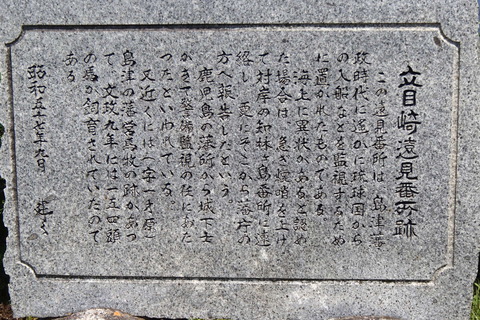 立目崎遠見番所跡
この遠見番所は、島津藩
政時代に遥かに琉球国から
の入船などを監視するため
に置かれたものである。
海上に異状があると認め
た場合は、急ぎ烽哨を上げ
て対岸の知林ヶ島番所に連
絡し、更にそこから藩庁の
方へ報告したという。
鹿児島の藩所から城下士
がきて警備監視の任にあた
ったといわれている。
又近くには(字一才原)
島津の藩営馬牧の跡があっ
て、文政九年には一五四頭
の馬が飼育されていたので
ある
昭和五十七年九月 建之